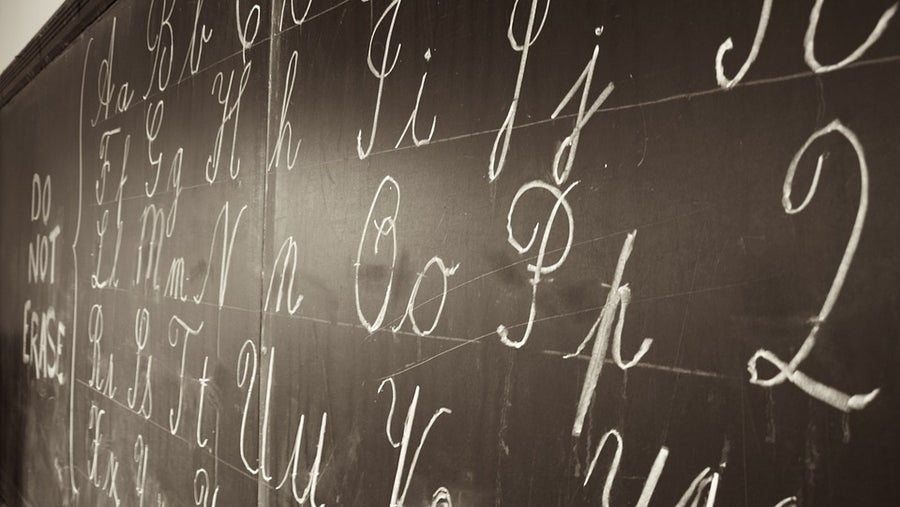 DO
NOT
ERASE
Aa Bb C
Ff Gg Hh Ii Jj K
Ll Mm Nn Oo Pp Q
Rr Ss Tt Uu Vv W
Xx Yy Z